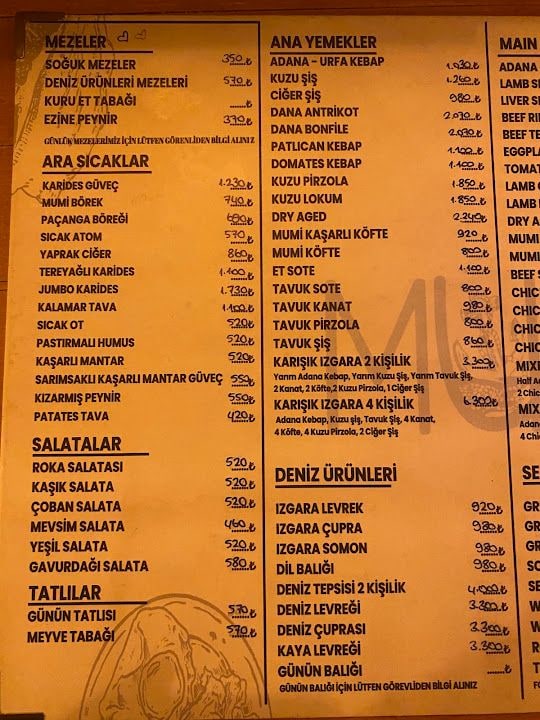 MEZELER
SOĞUK MEZELER 350₺
DENİZ ÜRÜNLERİ MEZELERİ 570₺
KURU ET TABAĞI ......₺
EZİNE PEYNİR 370₺
GÜNLÜK MEZELERİMİZ İÇİN LÜTFEN GÖRENLİDEN BİLGİ ALINIZ
ARA SICAKLAR
KARİDES GÜVEÇ 1.230₺
MUMİ BÖREK 740₺
PAÇANGA BÖREĞİ 690₺
SICAK ATOM 570₺
YAPRAK CİĞER 860₺
TEREYAĞLI KARİDES 1.100₺
JUMBO KARİDES 1.730₺
KALAMAR TAVA 1.100₺
SICAK OT 520₺
PASTIRMALI HUMUS 520₺
KAŞARLI MANTAR 520₺
SARIMSAKLI KAŞARLI MANTAR GÜVEÇ 550₺
KIZARMIŞ PEYNİR 550₺
PATATES TAVA 420₺
SALATALAR
ROKA SALATASI 520₺
KAŞIK SALATA 520₺
ÇOBAN SALATA 520₺
MEVSİM SALATA 460₺
YEŞİL SALATA 520₺
GAVURDAĞI SALATA 580₺
TATLILAR
GÜNÜN TATLISI 570₺
MEYVE TABAĞI 570₺
ANA YEMEKLER
ADANA - URFA KEBAP 1.030₺
KUZU ŞİŞ 1.260₺
CİĞER ŞİŞ 980₺
DANA ANTRİKOT 2.070₺
DANA BONFİLE 2.070₺
PATLICAN KEBAP 1.100₺
DOMATES KEBAP 1.100₺
KUZU PİRZOLA 1.850₺
KUZU LOKUM 1.850₺
DRY AGED 2.240₺
MUMİ KAŞARLI KÖFTE 920₺
MUMİ KÖFTE 800₺
ET SOTE 1.100₺
TAVUK SOTE 800₺
TAVUK KANAT 980₺
TAVUK PİRZOLA 800₺
TAVUK ŞİŞ 860₺
KARIŞIK IZGARA 2 KİŞİLİK 3.300₺
Yarım Adana Kebap, Yarım Kuzu Şiş, Yarım Tavuk Şiş,
2 Kanat, 2 Köfte, 2 Kuzu Pirzola, 1 Ciğer Şiş
KARIŞIK IZGARA 4 KİŞİLİK 6.300₺
Adana Kebap, Kuzu şiş, Tavuk Şiş, 4 Kanat,
4 Köfte, 4 Kuzu Pirzola, 2 Ciğer Şiş
DENİZ ÜRÜNLERİ
IZGARA LEVREK 920₺
IZGARA ÇUPRA 920₺
IZGARA SOMON 920₺
DİL BALIĞI 980₺
DENİZ TEPSİSİ 2 KİŞİLİK 4.000₺
DENİZ LEVREĞİ 3.300₺
DENİZ ÇUPRASI 3.300₺
KAYA LEVREĞİ 3.300₺
GÜNÜN BALIĞI ......₺
GÜNÜN BALIĞI İÇİN LÜTFEN GÖREVLİDEN BİLGİ ALINIZ
MAIN
ADANA
LAMB S
LIVER S
BEEF RI
BEEF TE
EGGPL
TOMAT
LAMB
LAMB
DRY A
MUMI
MUMI
BEEF S
CHIC
CHIC
CHIC
CHIC
MIX
Half A
2 Chic
MIX
Adan
4 Chic
SE
GR
GR
GR
SO
SE
W
W
R